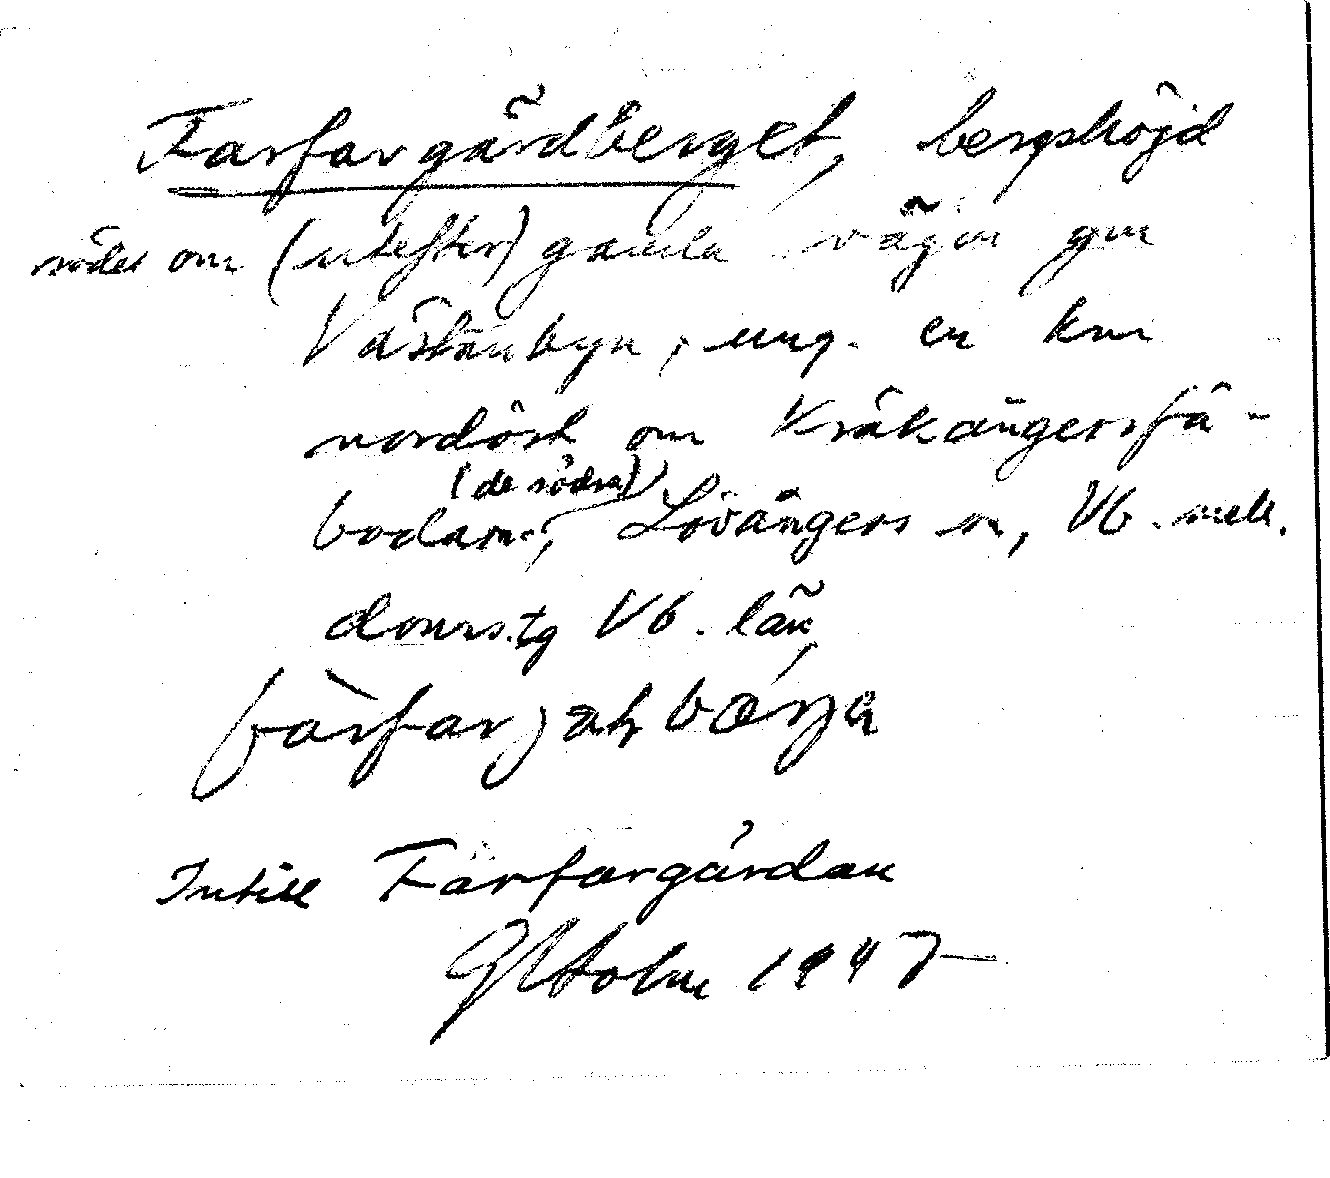 Farfargårdberget, bergshöjd
söder om (utefter) gamla vägen gm
Västanbyn, ung. en km
nordöst om Kräkångersfä-
(de södra)
bodarna, Lövångers sn, Vb. mell.
doms.tg Vb. län
Intill Farfargårdan
Holm 1947